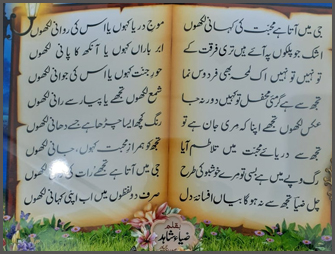 جی میں آتا ہے محبت کی کہانی لکھوں
موج دریا کہوں یا اس کی روانی لکھوں
اشک جو پلکوں پہ آئے ہیں تری فرقت کے
ابر باراں کہوں یا آنکھ کا پانی لکھوں
تو نہیں تو نہیں اک لمحہ بھی فردوس نما
حور جنت کہوں یا اس کی جوانی لکھوں
تجھ سے ہے گرمی محفل تو کہیں دور نہ جا
شمع لکھوں تجھے یا پیار سے رانی لکھوں
عکس لکھوں تجھے اپنا کہ مری جان ہے تو
رنگ کچھ ایسا چڑھا ہے جسے دھانی لکھوں
تجھ سے دریائے محبت میں تلاطم آیا
تجھ کو ہمراز محبت کہوں، جانی لکھوں
رگ و پے میں ہے بسی تو مرے خوشبو کی طرح
جی میں آتا ہے تجھے رات کی رانی لکھوں
چل ضیا تجھ سے نہ ہو گا بیاں افسانہ دل
صرف دو لفظوں میں اب اپنی کہانی لکھوں
بقلم
ضیاء شاہد